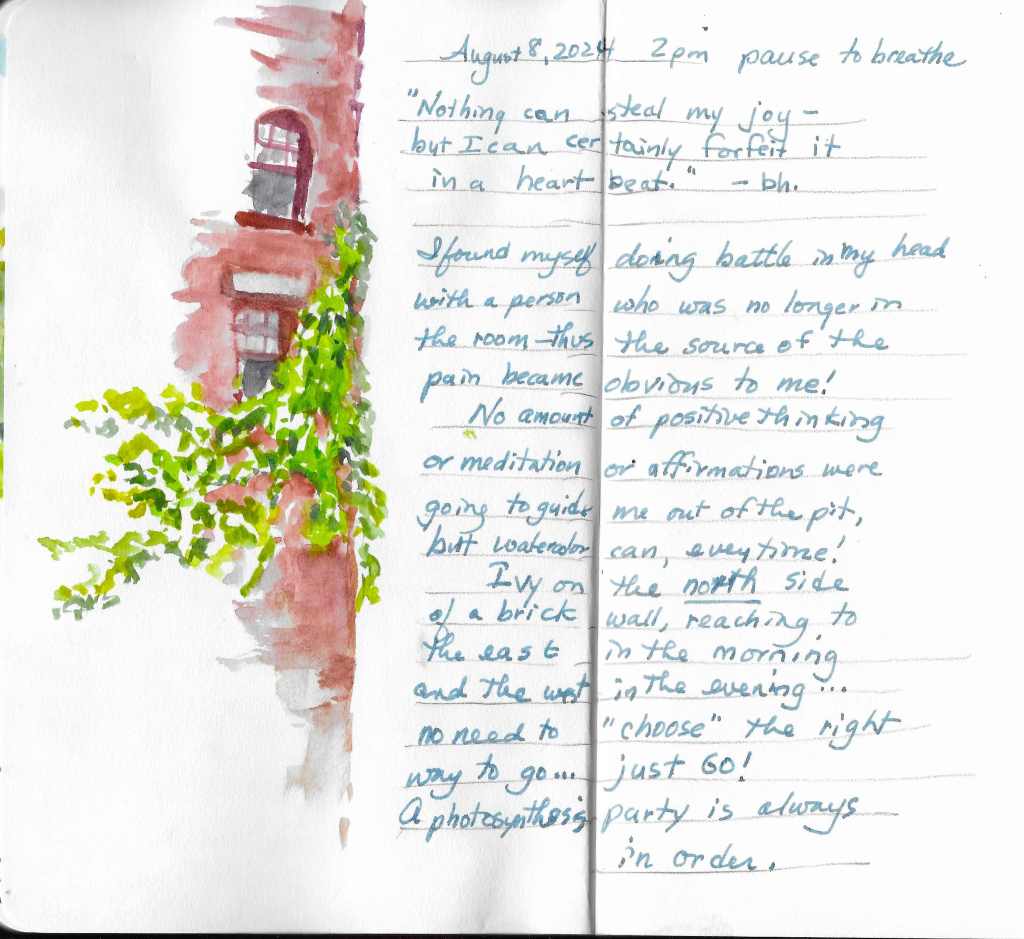 August 8, 2024 2pm pause to breathe
"Nothing can steal my joy –
but I can certainly forfeit it
in a heart beat." – bh.
I found myself doing battle in my head
with a person who was no longer in
the room – thus the source of the
pain became obvious to me!
No amount of positive thinking
or meditation or affirmations were
going to guide me out of the pit,
but watercolor can, evey time!
Ivy on the north side
of a brick wall, reaching to
the east in the morning
and the west in the evening...
no need to "choose" the right
way to go... just GO!
A photosynthesis party is always
in order.